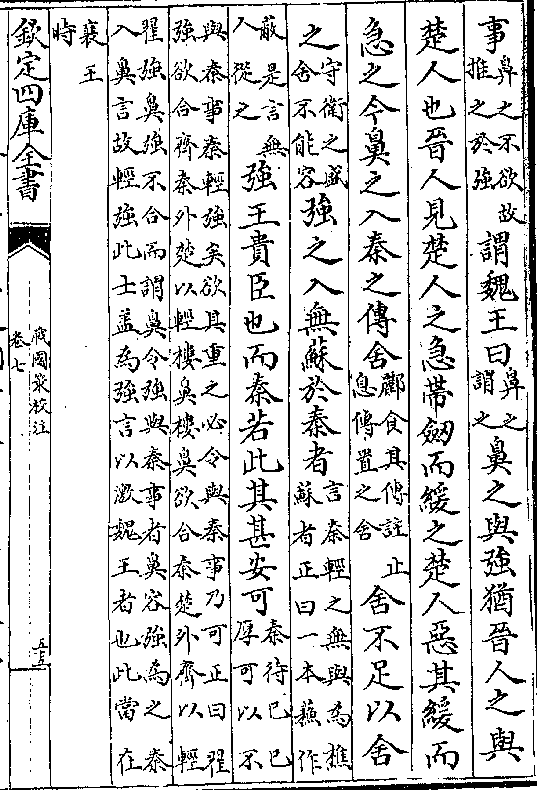 事鼻之不欲故推之於強謂魏王曰鼻之謂之鼻之與強猶晉人之與
楚人也晉人見楚人之急帶劔而緩之楚人惡其緩而
急之今鼻之入秦之傳舍酈食其傳註止息傳置之舍舍不足以舍
之守衛之盛舍不能容強之入無蘇於秦者言秦輕之無與為樵蘇者正曰一本蘇作
蔽是言無人從之強王貴臣也而秦若此其甚安可秦待已已厚可以不
與秦事秦輕強矣欲其重之必令與秦事乃可正曰翟
強欲合齊秦外楚以輕樓鼻樓鼻欲合秦楚外齊以輕
翟強鼻強不合而謂鼻令強與秦事者鼻容強為之秦
入鼻言故輕強此士盖為強言以激魏王者也此當在
襄王
時
欽定四庫全書
戰國策校注
卷七
五五